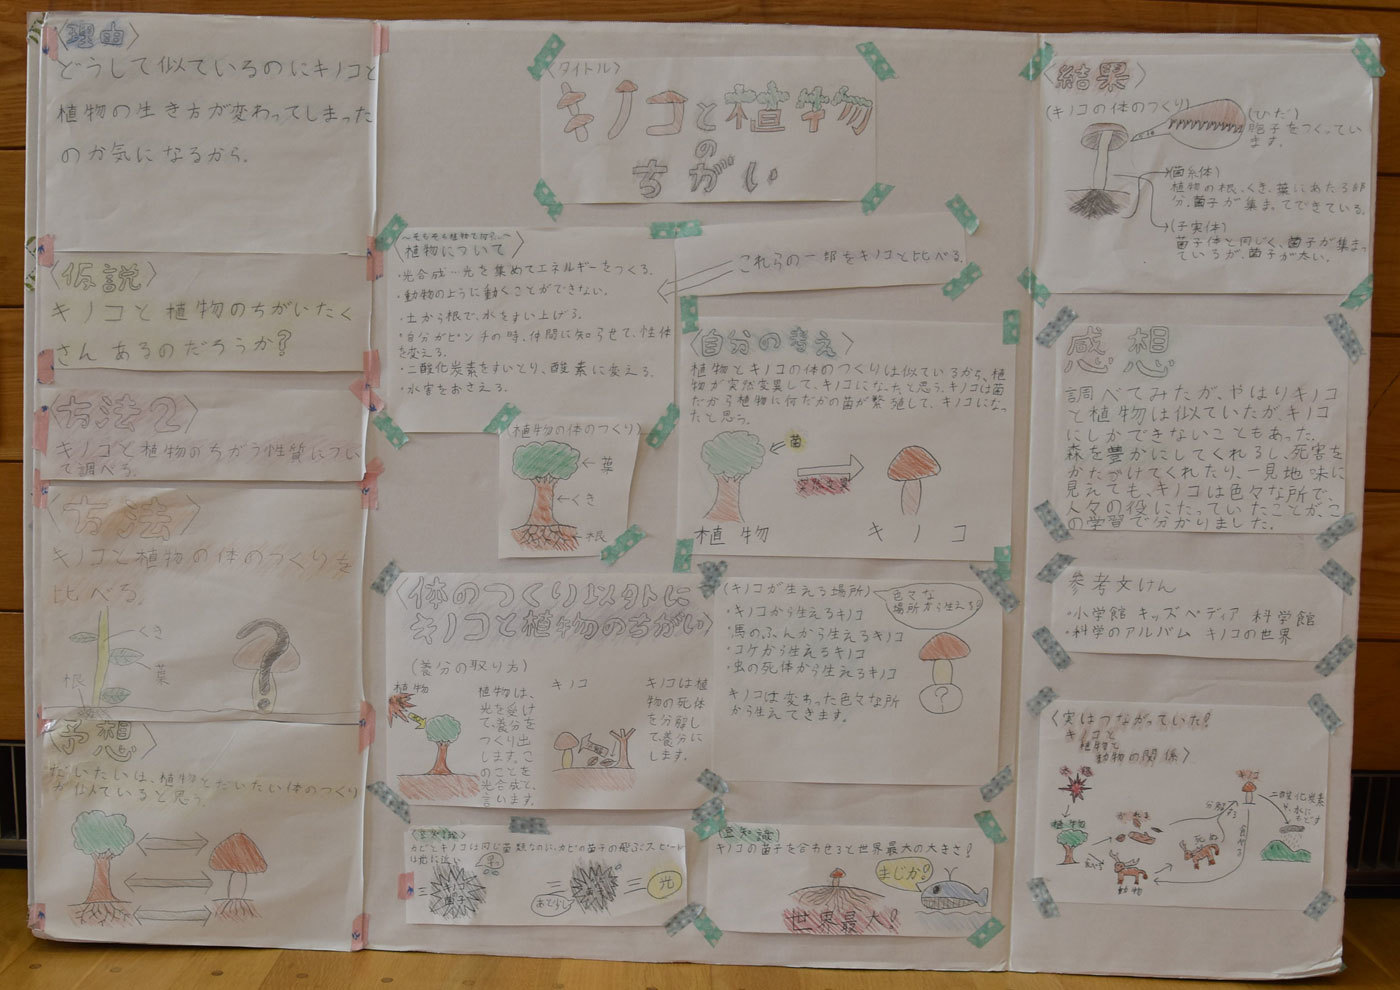 〈理由〉
どうして似ているのにキノコと
植物の生き方が変わってしまった
のか気になるから。
〈仮説〉
キノコと植物のちがいたく
さんあるのだろうか？
〈方法2〉
キノコと植物のちがう性質につい
て調べる。
〈方法〉
キノコと植物の体のつくりを
比べる。
くき
葉
根
?
〈予想〉
だいたいは、植物とだいたい体のつくり
が似ていると思う。
〈タイトル〉
キノコと植物
の
ちがい
〜そもそも植物て何?〜
〈植物について〉
・光合成…光を集めてエネルギーをつくる。
・動物のように動くことができない。
・土から根で、水をすい上げる。
・自分がピンチの時、仲間に知らせて、性体
を変える。
・二酸化炭素をすいとり、酸素に変える。
・水害をおさえる。
これらの一部をキノコと比べる。
(植物の体のつくり)
葉
くき
根
〈自分の考え〉
植物とキノコの体のつくりは似ているから、植
物が突然変異して、キノコになったと思う。キノコは菌
だから植物に何だかの菌が繁殖して、キノコになっ
たと思う。
菌
突然変異
植物
キノコ
〈体のつくり以外に
キノコと植物のちがい〉
(養分の取り方)
植物
植物は、
光を受け
て、養分を
つくり出
します。こ
のことを
光合成と、
言います。
キノコ
キノコは植
物の死体
を分解し
て、養分に
します。
(キノコが生える場所)
・キノコから生えるキノコ
・馬のふんから生えるキノコ
・コケから生えるキノコ
・虫の死体から生えるキノコ
キノコは変わった色々な所
から生えてきます。
色々な
場所から生える!
?
〈豆知識〉
カビとキノコは同じ菌類なのに、カビの菌子の飛ぶスピード
は光に近い
キノコ
菌子
あと少し
光
〈豆知識〉
キノコの菌子を合わせると世界最大の大きさ!
まじか?
世界最大!
〈結果〉
(キノコの体のつくり)
(ひだ)
胞子をつくってい
ます。
(菌糸体)
植物の根、くき、葉にあたる部
分。菌子が集まってできている。
(子実体)
菌子体と同じく、菌子が集まっ
ているが、菌子が太い。
感想
調べてみたが、やはりキノコ
と植物は似ていたが、キノコ
にしかできないこともあった。
森を豊かにしてくれるし、死害を
かたづけてくれたり、一見地味に
見えても、キノコは色々な所で、
人々の役にたっていたことが、こ
の学習で分かりました。
参考文けん
・小学館 キッズペディア 科学館
・科学のアルバム キノコの世界
〈実はつながっていた!
キノコと
植物と
動物の関係〉
太陽
植物
かれる
動物
死ぬ
分解
する
食べる
キノコ
二酸化炭素
水に
もどす